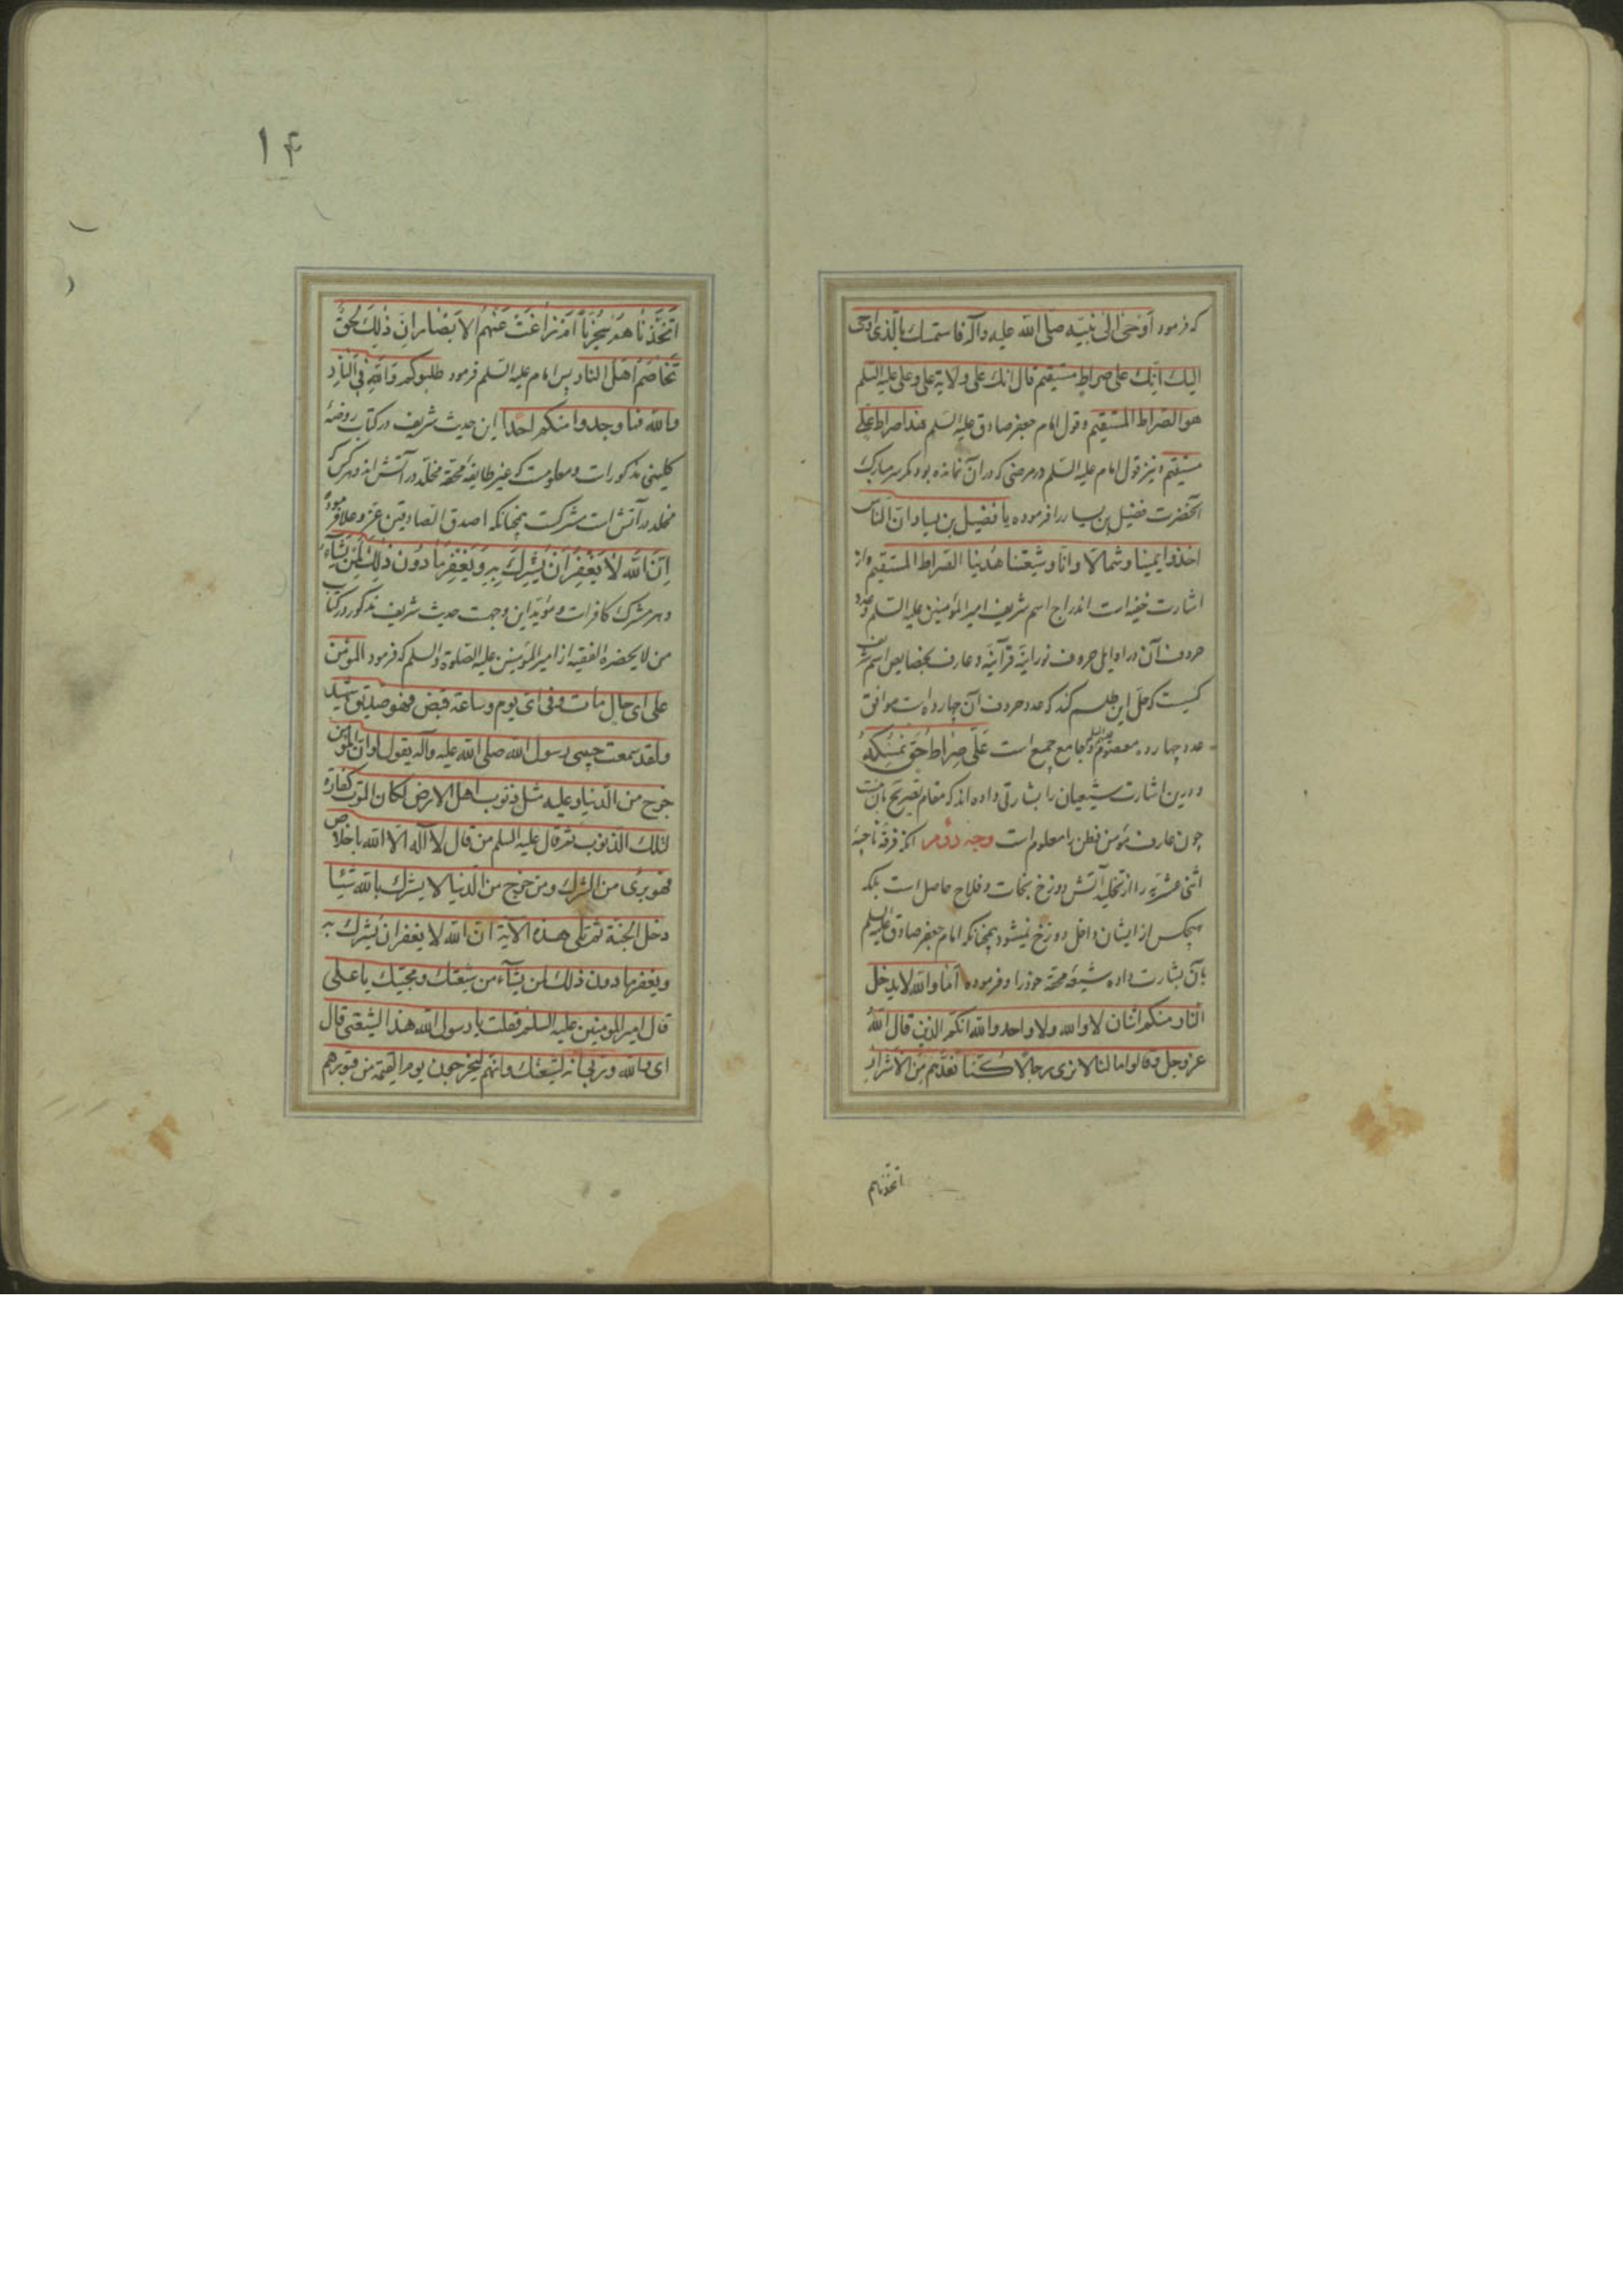 که فرمود اوحی الی نبیه صلی الله علیه وآله فاستمسك بالذی اوحی
الیك انك علی صراط مستقیم قال انك علی ولایة علی وعلی علیه السلم
هو الصراط المستقیم وقول امام جعفر صادق علیه السلم هذا صراط علی
مستقیم و نیز قول امام علیه السلم در مرضی که در آن نمانده بود مگر سر مبارک
آنحضرت فضیل بن یسار را فرموده یا فضیل بن یسار ان الناس
اخذوا یمینا وشمالا وانا وشیعتنا هدینا الصراط المستقیم و از
اشارت خفیه است اندراج اسم شریف امیر المؤمنین علیه السلم وعدد
حروف آن در اوایل حروف نورانیّه قرآنیّه و عارف بخصایص اسم شریف
کیست که حل این طلسم کند که عدد حروف آن چهارده است موافق
عدد چهارده معصوم و جامع جمیع است عَلَی صِرَاطُ حَقٍ نُمْسِکُهُ
و درین اشارت شیعیان را بشارتی داده اند که مقام تصریح بآن نیست
چون عارف مؤمن فطن را معلوم است وجه دوّم آنکه فرقه ناجیهٔ
اثنی عشریّه را از تخلید آتش دوزخ نجات و فلاح حاصل است بلکه
هیچکس از ایشان داخل دوزخ نمیشود چنانکه امام جعفر صادق علیه السلم
بآن بشارت داده شیعهٔ محقهٔ خود را و فرموده اما والله لا یدخل
النار منکم اثنان لا والله ولا واحد والله انکم الذین قال الله
عز وجل وقالوا ما لنا لا نری رجالا کُنّا نَعُدُّهُم مِنَ الْاَشْرارِ
اتخذناهم
۱۴
اَتَّخَذْنَاهُمْ سِخْرِیّاً اَمْ زاغَتْ عَنْهُمُ الْاَبْصَارُ اِنَّ ذٰلِكَ لَحَقٌّ
تَخاصُمُ اَهْلِ النار پس امام علیه السلم فرمود طلبوکم والله فی النار
والله فما وجدوا منکم احدا این حدیث شریف در کتاب روضهٔ
کلینی مذکور است و معلومست که غیر طایفهٔ محقه مخلد در آتش اند و هرکس که
مخلد در آتش است مشرکست چنانکه اصدق الصادقین عز و علا فرموده
اِنَّ اللهَ لَا یَغْفِرُ اَنْ یُشْرَكَ بِهِ وَیَغْفِرُ مَا دُونَ ذٰلِكَ لِمَنْ یَشآءُ
و هر مشرک کافر است و مؤید این وجهست حدیث شریف مذکور در کتاب
من لا یحضره الفقیه از امیر المؤمنین علیه الصلوة والسلم که فرمود المؤمن
علی ای حال مات وفی ای یوم وساعة قبض فهو صدیق شهید
ولقد سمعت حبیبی رسول الله صلی الله علیه وآله یقول لو ان المؤمن
خرج من الدنیا وعلیه مثل ذنوب اهل الارض لکان الموت کفارة
لتلك الذنوب ثم قال علیه السلم من قال لا اله الا الله باخلاص
فهو بریء من الشرك ومن خرج من الدنیا لا یشرك بالله شیئا
دخل الجنة ثم تلی هذه الآیة ان الله لا یغفر ان یشرك به
ویغفر ما دون ذلك لمن یشآء من شیعتك ومحبیك یا علی
قال امیر المؤمنین علیه السلم فقلت یا رسول الله هذا لشیعتی قال
ای والله وربی انه لشیعتك وانهم لیخرجون یوم القیمة من قبورهم